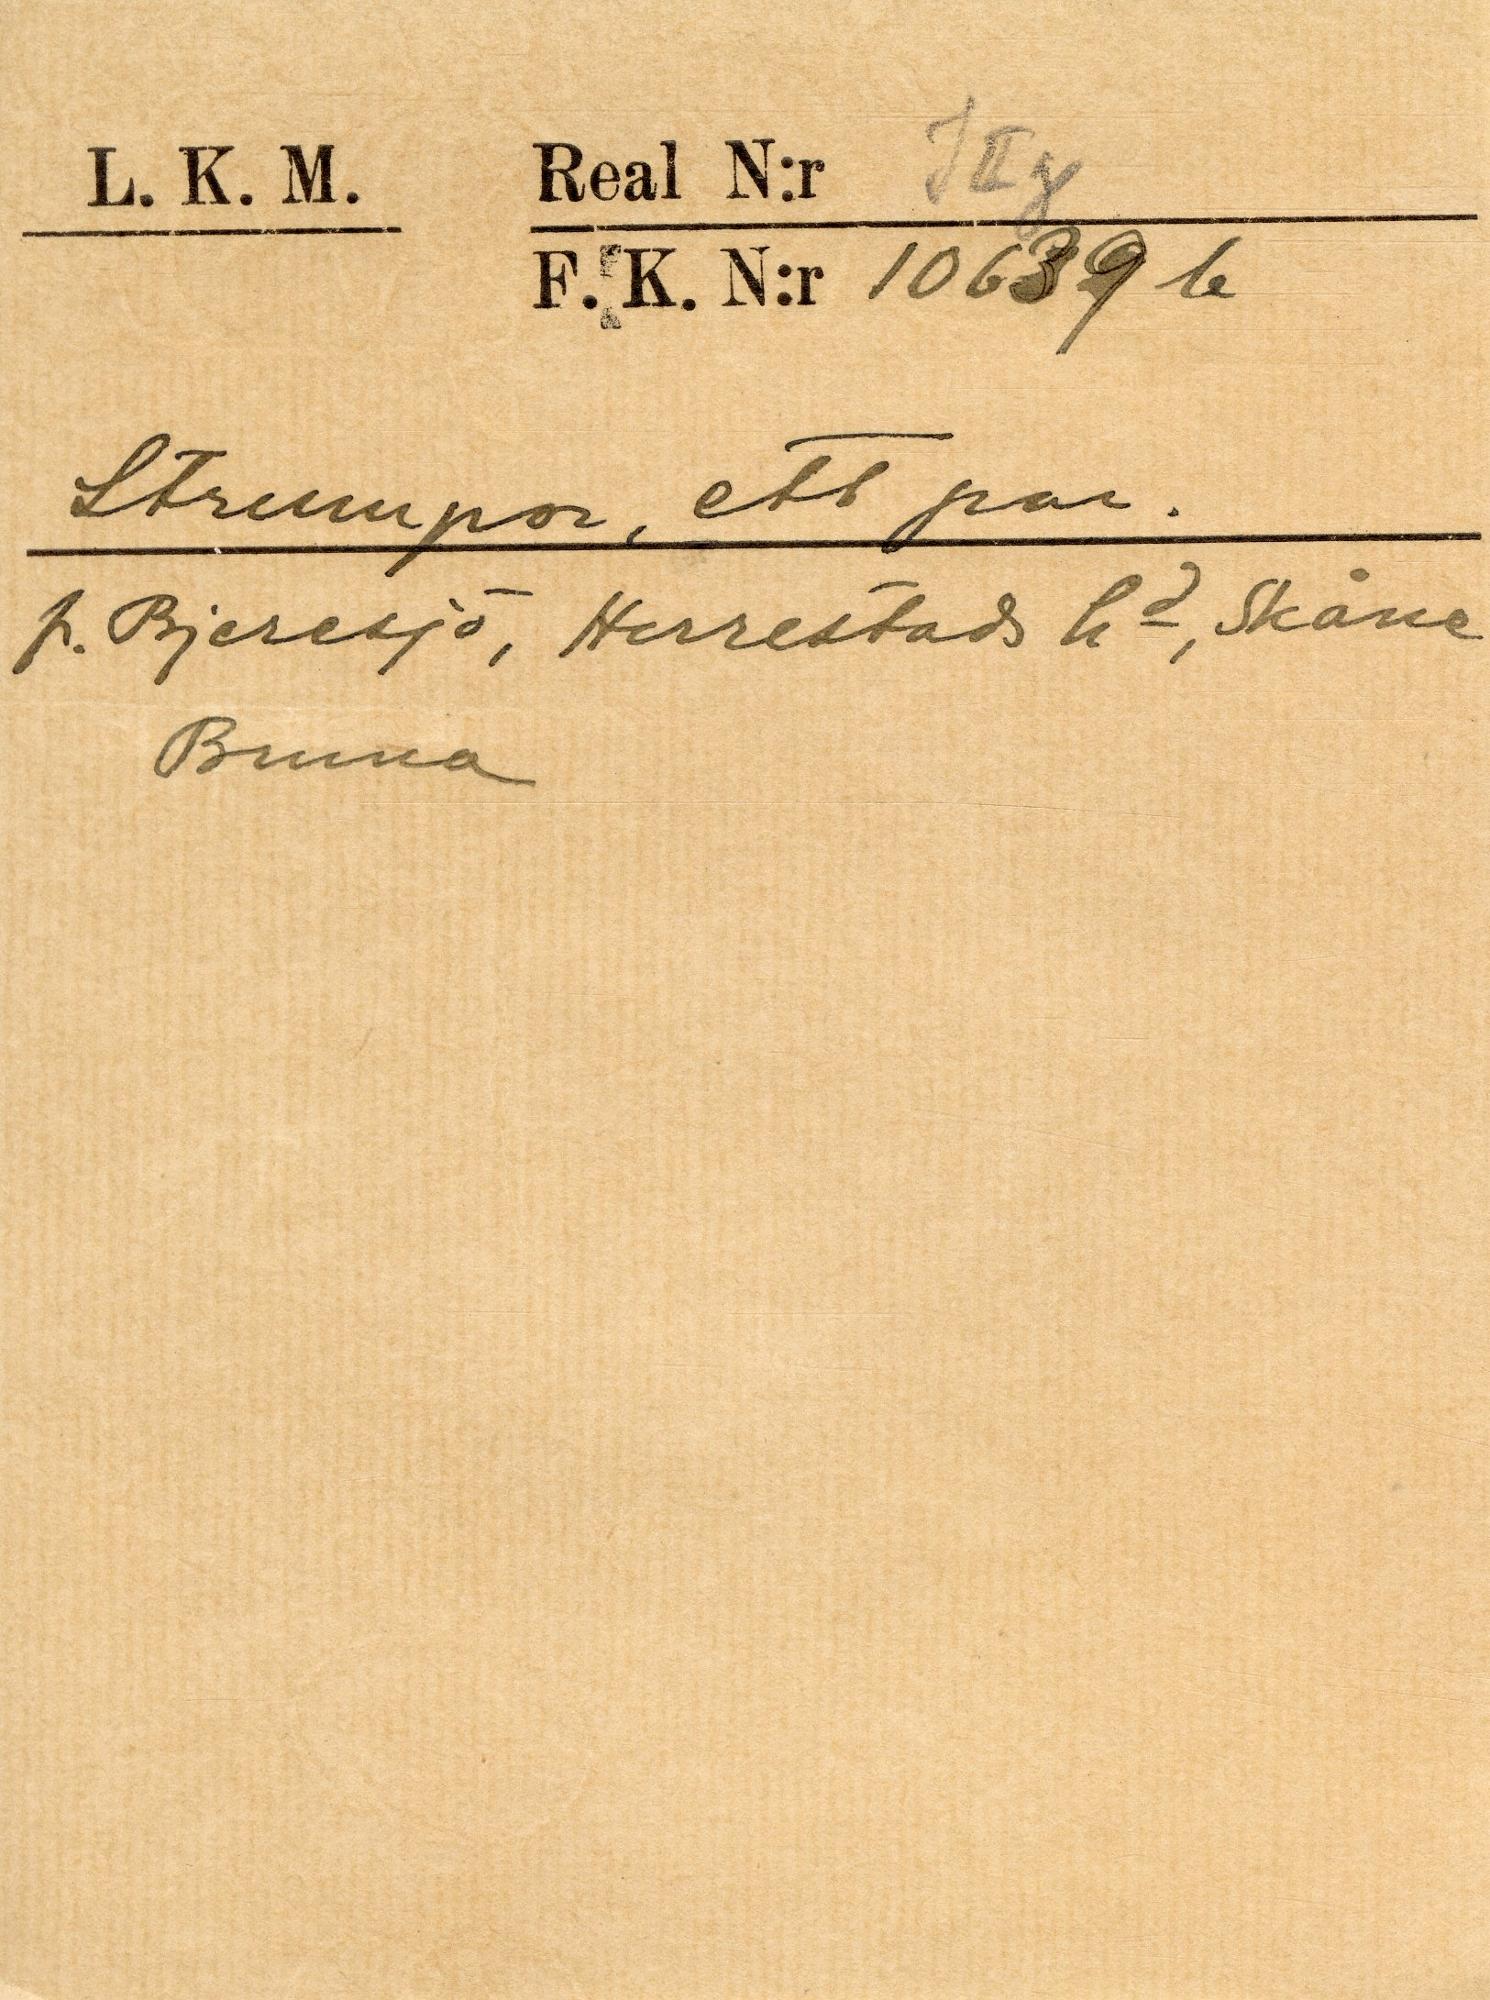 L. K. M. Real N:r I II g
F. K. N:r 10639 b
Strumpor, ett par.
fr. Bjeresjö, Herrestads hd, Skåne
Bruna